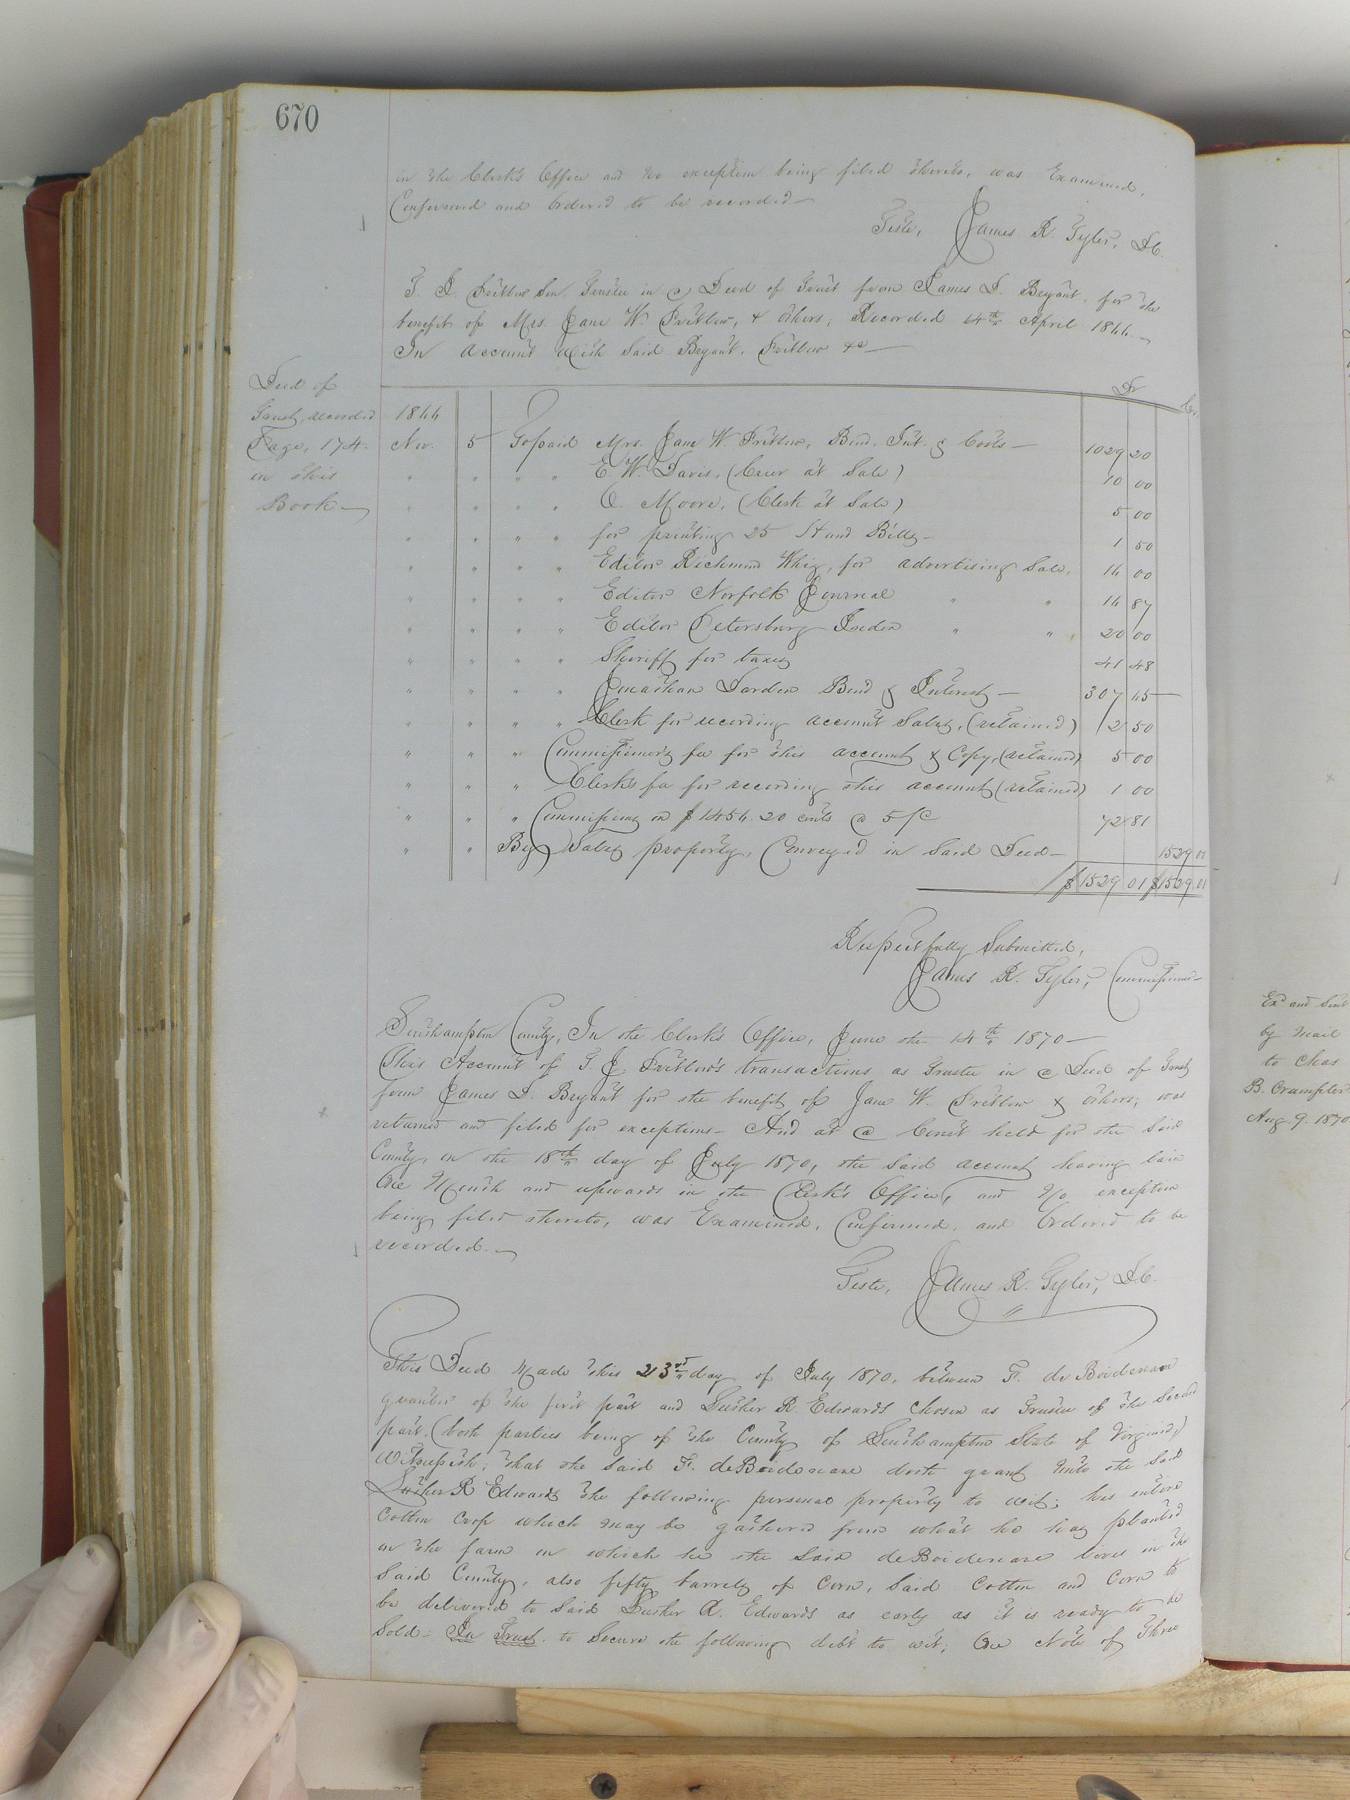 670
in the Clerk's Office and no exception being filed thereto, was Examined,
Confirmed and Ordered to be recorded—
Teste, James R. Tyler, D.C.
T. J. Pretlow Sen. Trustee in a Deed of Trust from James D. Bryant, for the
benefit of Mrs. Jane W. Pretlow, & others, Recorded 14th April 1844.
In account with Said Bryant, Pretlow &c—
Deed of
Trust, recorded
Page, 174.
in this
Book—
Dr Cr.
1844
Nov. 5 To paid Mrs. Jane W. Pretlow, Bond, Int. & Costs— 1029 20
" " " " E W. Davis, (Crier at Sale) 10 00
" " " " O. Moore, (Clerk at Sale) 5 00
" " " " for printing 25 Hand Bills— 1 50
" " " " Editor Richmond Whig, for advertising Sale, 14 00
" " " " Editor Norfolk Journal " " 14 87
" " " " Editor Petersburg Index " " 20 00
" " " " Sheriff for taxes 41 48
" " " " Jonathan Darden Bond & Interest— 307 45
" " " " Clerk for recording account Sales, (retained) 2 50
" " " Commissioner's fee for this account & Copy, (retained) 5 00
" " " Clerk's fee for recording this account (retained) 1 00
" " " Commissions on $1454.20 cents @ 5 pc 72 81
" " By Sales property, Conveyed in Said Deed— 1529 01
$1529 01 $1529 01
Respectfully Submitted,
James R. Tyler, Commissioner—
Southampton County, In the Clerk's Office, June the 14th 1870—
This Account of T. J. Pretlow's transactions as Trustee in a Deed of Trust
from James D. Bryant for the benefit of Jane W. Pretlow & others, was
returned and filed for exceptions— And at a Court held for the Said
County, on the 18th day of July 1870, the said account having lain
One Month and upwards in the Clerk's Office, and No exception
being filed thereto, was Examined, Confirmed, and Ordered to be
recorded.—
Teste, James R. Tyler, D.C.
This Deed Made this 23rd day of July 1870, between F. de Boidenare
grantor of the first part and Lusher R. Edwards Chosen as Trustee of the Second
part, (both parties being of the County of Southampton State of Virginia,)
Witnesseth, that the said F. deBoidenare doth grant Unto the Said
Lusher R Edwards the following personal property to wit; his entire
Cotton Crop which may be gathered from what he has planted
on the farm on which he the Said deBoidenare lives in the
Said County, also fifty barrels of Corn, Said Cotton and Corn to
be delivered to Said Lusher R. Edwards as early as it is ready to be
Sold— In Trust to Secure the following debt to wit, One Note of Three
Exd and Sent
by Mail
to Chas
B. Crumpler
Aug 9. 1870